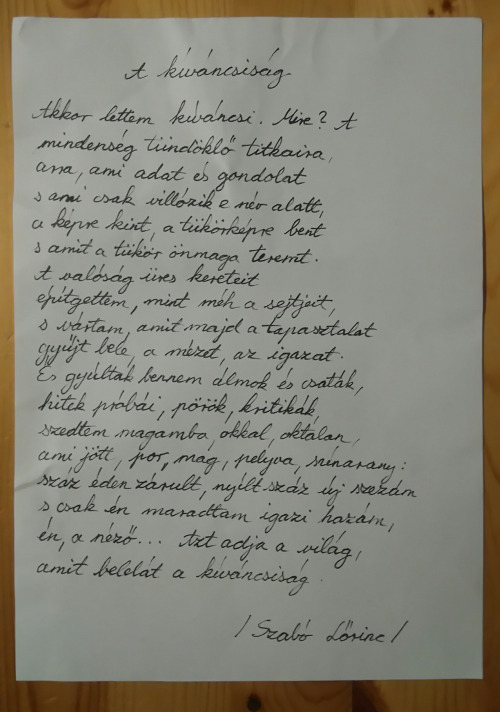 A kíváncsiság
Akkor lettem kíváncsi. Mire? A
mindenség tündöklő titkaira,
arra, ami adat és gondolat
s ami csak villózik e név alatt,
a képre kint, a tükörképre bent
s amit a tükör önmaga teremt.
A valóság üres kereteit
építgettem, mint méh a sejtjeit,
s vártam, amit majd a tapasztalat
gyűjt bele, a mézet, az igazat.
És gyúltak bennem álmok és csaták,
hitek próbái, pörök, kritikák,
szedtem magamba okkal, oktalan,
ami jött, por, mag, pelyva, színarany:
száz éden zárult, nyílt száz új szezám
s csak én maradtam igazi hazám,
én, a néző... Azt adja a világ,
amit belelát a kíváncsiság.
/ Szabó Lőrinc /